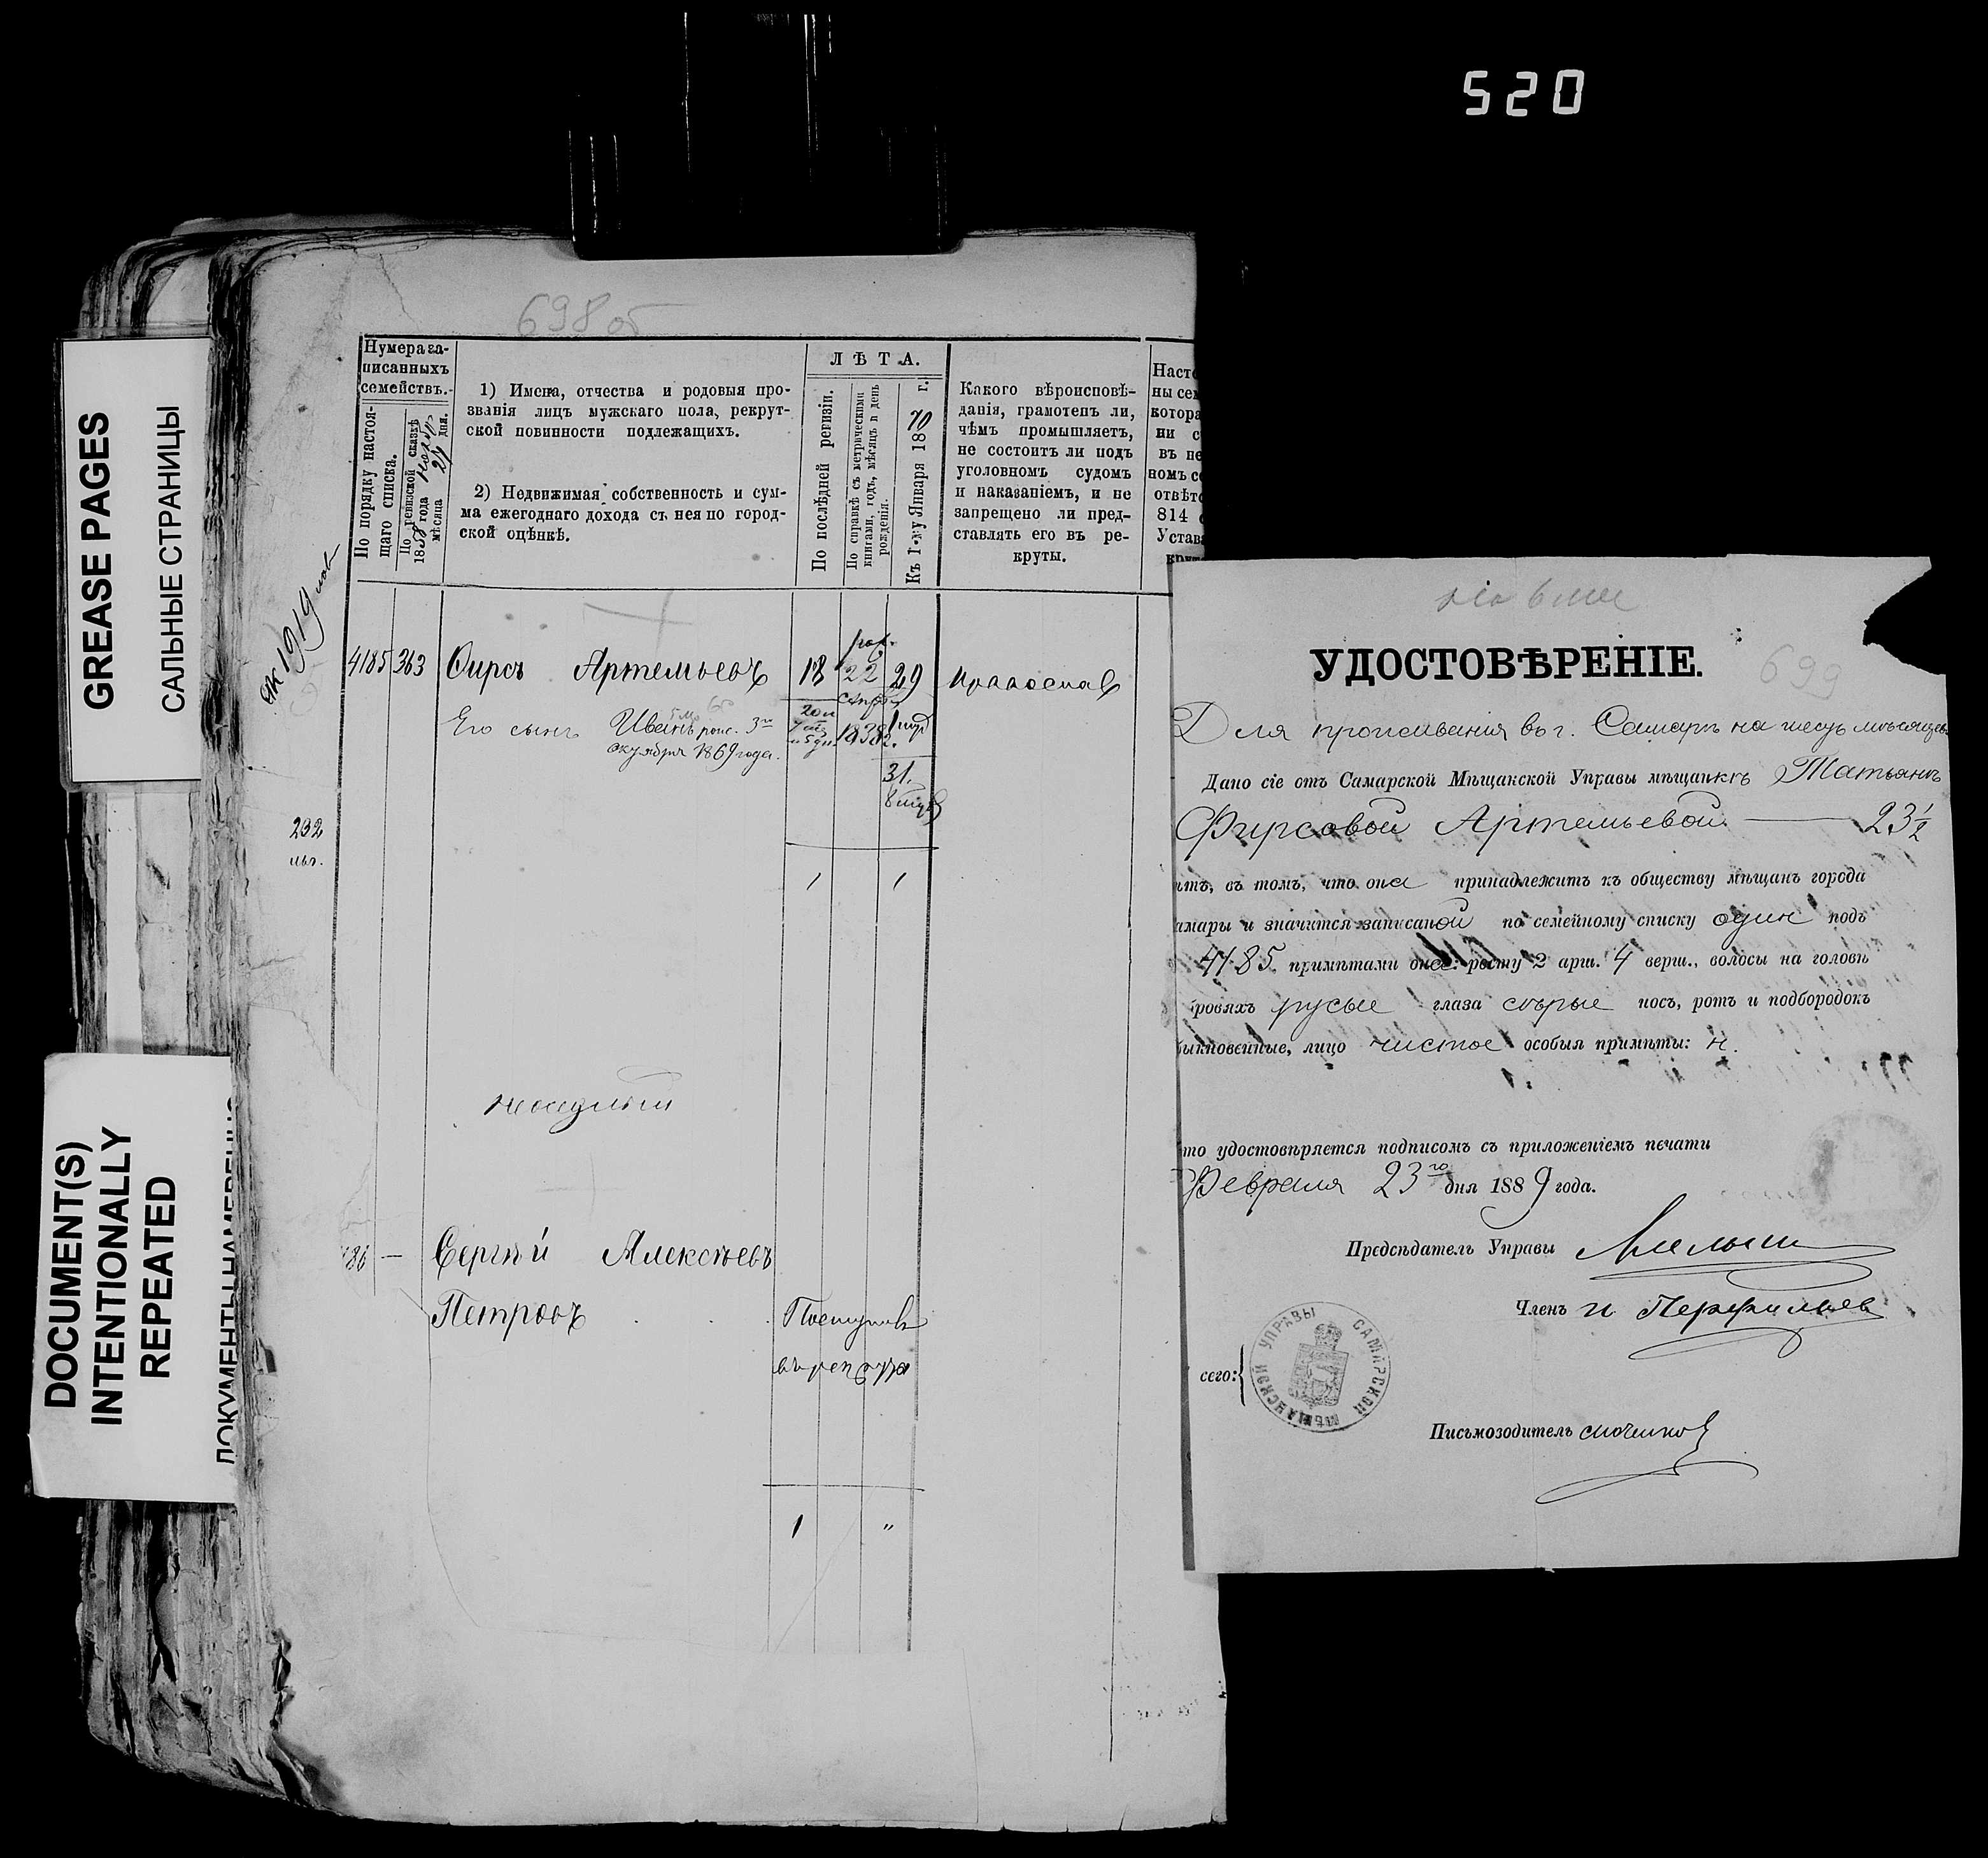 520
GREASE PAGES
САЛЬНЫЕ СТРАНИЦЫ
DOCUMENT(S)
INTENTIONALLY
REPEATED
698 об
Нумера за-
писанныхъ
семействъ.
По порядку настоя-
щаго списка.
По ревизской сказкѣ
1858 года
мѣсяца 24 дня.
1) Имена, отчества и родовыя про-
званія лицъ мужскаго пола, рекрут-
ской повинности подлежащихъ.
2) Недвижимая собственность и сум-
ма ежегоднаго дохода съ нея по город-
ской оцѣнкѣ.
ЛѢТА.
По послѣдней ревизіи.
По справкѣ съ метрическими
книгами, годъ, мѣсяцъ и день
рожденія.
Къ 1-му Января 1870 г.
Какого вѣроисповѣ-
данія, грамотенъ ли,
чѣмъ промышляетъ,
не состоитъ ли подъ
уголовномъ судомъ
и наказаніемъ, и не
запрещено ли пред-
ставлять его въ ре-
круты.
Насто
ны сем
котора
ни с
въ не
номъ со
отвѣтс
814
Устав
1919
4185 363 Ѳирсъ Артемьевъ 18 22 29 православ
Его сынъ Иванъ 3го
октября 1869 года.
1838
31.
232
1 1
86 — Сергѣй Алексѣевъ
Петровъ
Поступилъ
въ рекруты
1 "
699
УДОСТОВѢРЕНІЕ.
Для проживанія въ г. Самарѣ на шесть мѣсяцевъ
Дано сіе отъ Самарской Мѣщанской Управы мѣщанкѣ Татьянѣ
Фирсовой Артемьевой — 23 1/2
ѣтъ, въ томъ, что она принадлежитъ къ обществу мѣщанъ города
амары и значится записаной по семейному списку один подъ
4185 примѣтами она: росту 2 арш. 4 верш., волосы на головѣ
ровяхъ русые глаза сѣрые носъ, ротъ и подбородокъ
быкновенные, лицо чистое особыя примѣты: н.
то удостовѣряется подписомъ съ приложеніемъ печати
Февраля 23го дня 1889 года.
Предсѣдатель Управы
Членъ И Перфильев
сего:
САМАРСКОЙ МѢЩАНСКОЙ УПРАВЫ
Письмозодитель